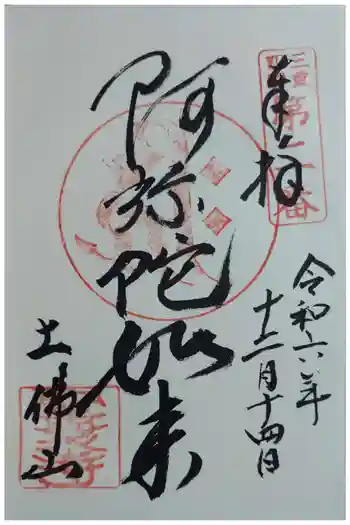 奉拝
令和六年
十二月十四日
阿弥陀如来
土佛山